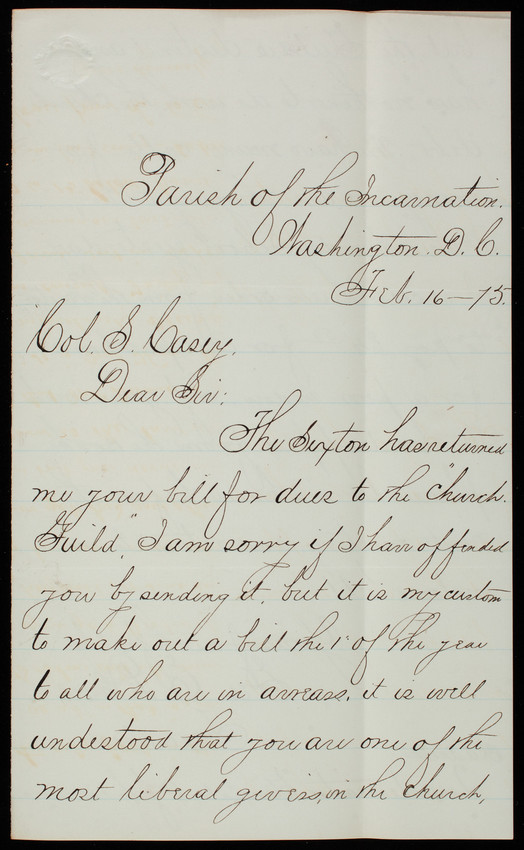 Parish of the Incarnation.
Washington. D. C.
Feb. 16—75.
Col. S. Casey.
Dear Sir:
The Sexton has returned
me your bill for dues to the "Church
Guild," I am sorry if I have offended
you by sending it, but it is my custom
to make out a bill the 1st of the year
to all who are in arrears. it is well
undestood that you are one of the
most liberal givers, in the church,